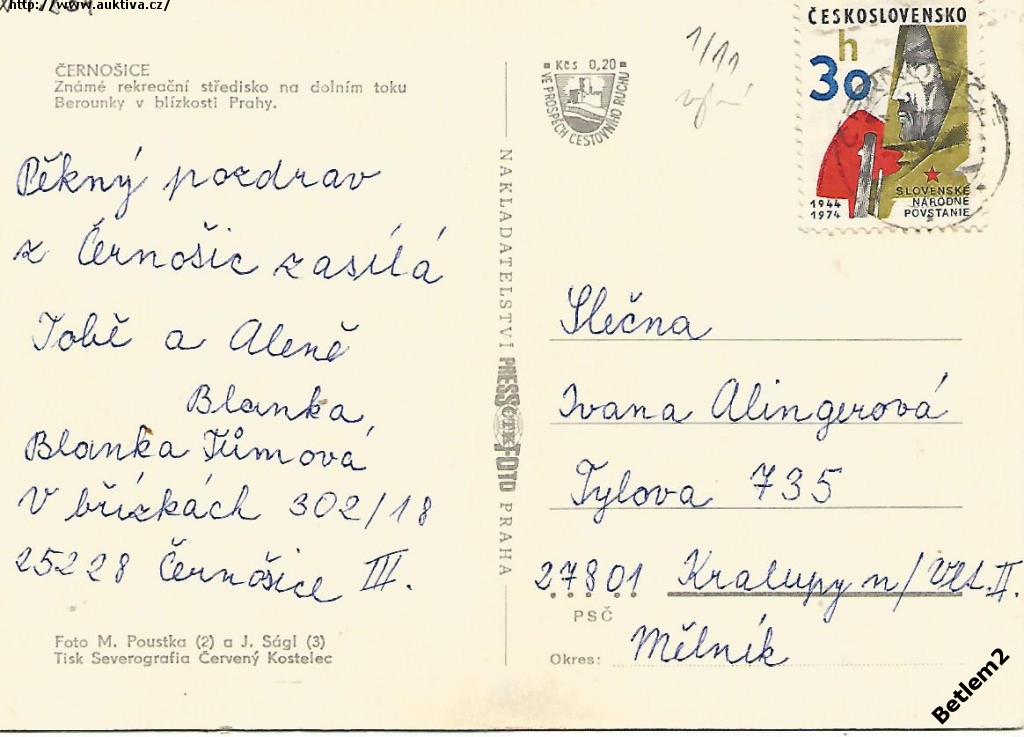 http://www.auktiva.cz/
ČERNOŠICE
Známé rekreační středisko na dolním toku
Berounky v blízkosti Prahy.
Pěkný pozdrav
z Černošic zasílá
Tobě a Aleně
Blanka,
Blanka Tůmová
V břízkách 302/18
25228 Černošice III.
Foto M. Poustka (2) a J. Ságl (3)
Tisk Severografia Červený Kostelec
NAKLADATELSTVÍ PRESSFOTO PRAHA
ČTK
Kčs 0,20
VE PROSPĚCH CESTOVNÍHO RUCHU
1/11
ČESKOSLOVENSKO
30 h
SLOVENSKÉ
NÁRODNÉ
POVSTANIE
1944
1974
Slečna
Ivana Alingerová
Tylova 735
27801 Kralupy n/Vlt. II.
PSČ
Okres: Mělník
Betlem2